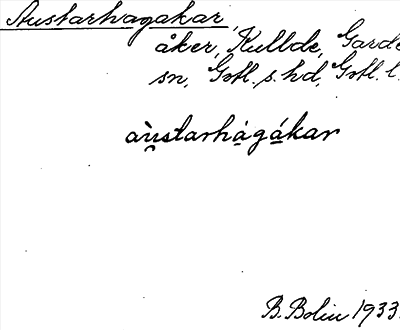 Austarhagakar,
åker, Kullde, Garde
sn, Gotl. s. hd, Gotl. l.
au̯starhagákar
B. Bolin 1933.